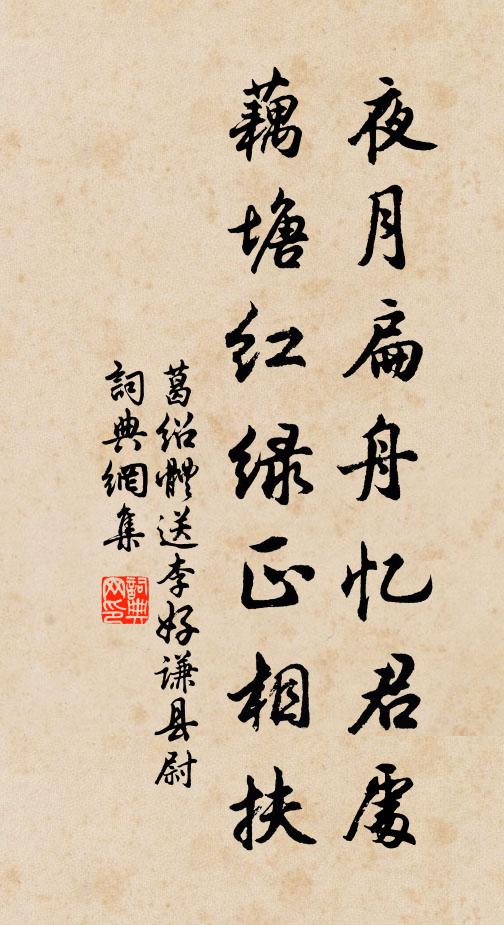 夜月扁舟忆君處
藕塘红绿正相扶
葛绍體送李好谦县尉
詞典網集
詞典網印